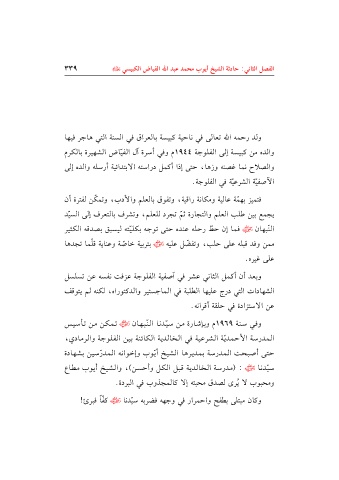 الفصل الثاني: حادثة الشيخ أيوب محمد عبد الله الفياض الكبيسي ٣٣٩
ولد رحمه الله تعالى في ناحية كبيسة بالعراق في السنة التي هاجر فيها
والده من كبيسة إلى الفلوجة ١٩٤٤م وفي أسرة آل الفيّاض الشهيرة بالكرم
والصلاح نما غصنه وزها، حتى إذا أكمل دراسته الابتدائية أرسله والده إلى
الآصفيّة الشرعيّة في الفلوجة.
فتميز بهمّة عالية ومكانة راقية، وتفوق بالعلم والأدب، وتمكّن لفترة أن
يجمع بين طلب العلم والتجارة ثمّ تجرد للعلم، وتشرف بالتعرف إلى السيّد
النّبهان فما إن حطّ رحله عنده حتى توجه بكليّته ليسبق بصدقه الكثير
ممن وفد قبله على حلب، وتفضّل عليه بتربية خاصّة وعناية قلّما تجدها
على غيره.
وبعد أن أكمل الثاني عشر في آصفية الفلوجة عزفت نفسه عن تسلسل
الشهادات التي درج عليها الطلبة في الماجستير والدكتوراه، لكنه لم يتوقف
عن الاستزادة في حلقة أقرانه.
وفي سنة ١٩٦٩م وبإشارة من سيّدنا النّبهان تمكن من تأسيس
المدرسة الأحمديّة الشرعية في الخالدية الكائنة بين الفلوجة والرمادي،
حتى أصبحت المدرسة بمديرها الشيخ أيّوب وإخوانه المدرّسين بشهادة
سيّدنا : (مدرسة الخالدية قبل الكل وأحسن)، والشيخ أيوب مطاع
ومحبوب لا يُرى لصدق محبته إلا كالمجذوب في البردة.
وكان مبتلى بطفح واحمرار في وجهه فضربه سيّدنا كفّاً فبرئ!